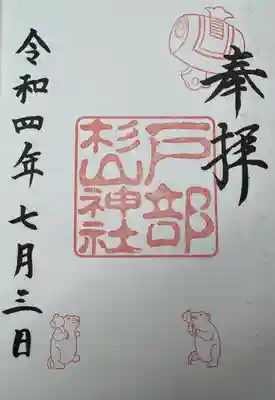 奉拝
戸部
杉山
神社
令和四年七月三日